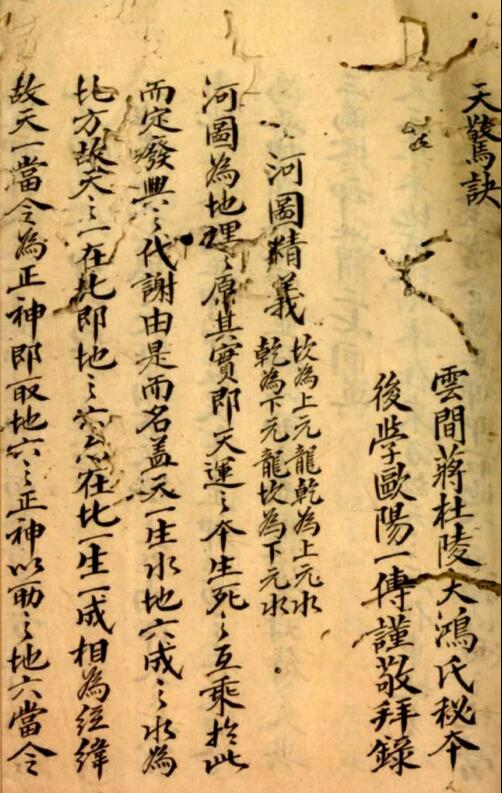 天驚訣
雲間蔣杜陵大鴻氏秘本
後學歐陽一傳謹敬拜錄
河圖精義
坎為上元龍乾為上元水
乾為下元龍坎為下元水
河圖為地理之原其實即天運之本生死之互乘於此
而定癈興之代謝由是而名盖天一生水地六成之水為
北方故天之一在北即地之六亦在北一生一成相為經緯
故天一當令為正神即取地六之正神以助之地六當令